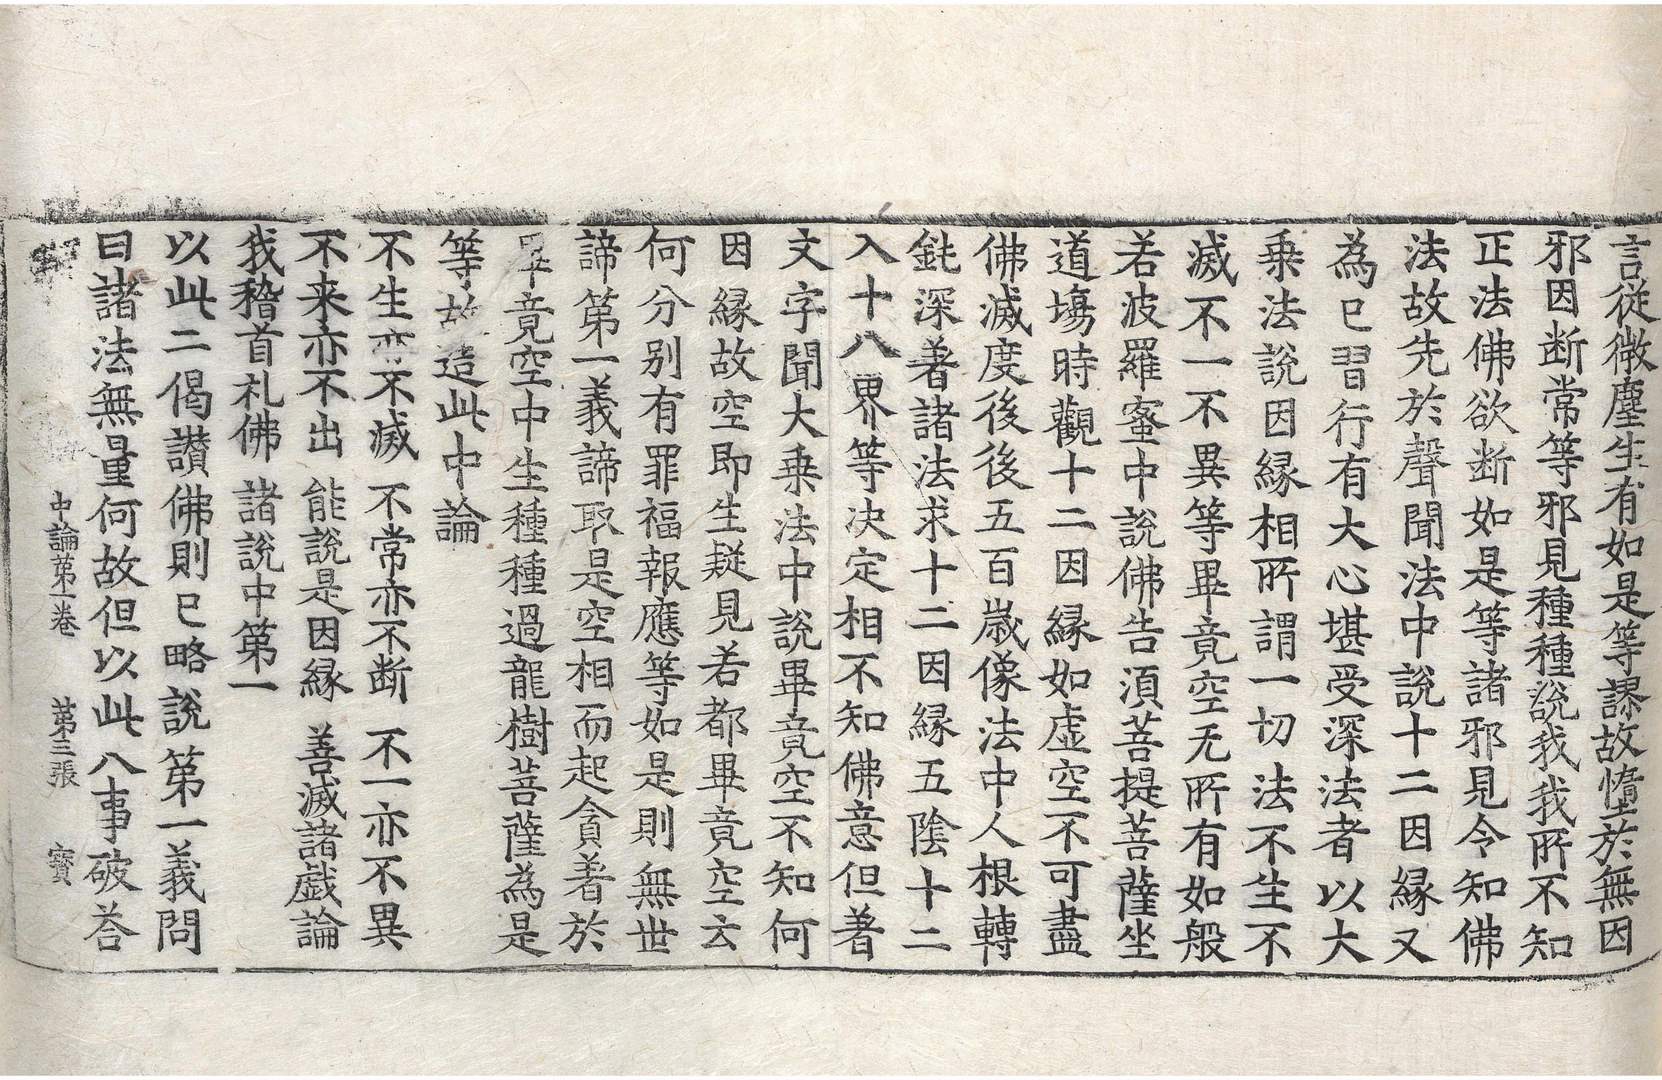 言從微塵生有如是等謬故墮於無因
邪因断常等邪見種種說我我所不知
正法佛欲断如是等諸邪見令知佛
法故先於聲聞法中說十二因縁又
為已習行有大心堪受深法者以大
乗法說因縁相所謂一切法不生不
滅不一不異等畢竟空无所有如般
若波羅蜜中說佛告須菩提菩薩坐
道場時觀十二因縁如虛空不可盡
佛滅度後後五百歲像法中人根轉
鈍深著諸法求十二因縁五陰十二
入十八界等决定相不知佛意但著
文字聞大乗法中說畢竟空不知何
因縁故空即生疑見若都畢竟空云
何分別有罪福報應等如是則無世
諦第一義諦取是空相而起貪著於
畢竟空中生種種過龍樹菩薩為是
等故造此中論
不生亦不滅 不常亦不断 不一亦不異
不来亦不出 能說是因縁 善滅諸戯論
我稽首礼佛 諸說中第一
以此二偈讃佛則已略說第一義問
曰諸法無量何故但以此八事破荅
中論第一卷 第三張 寳